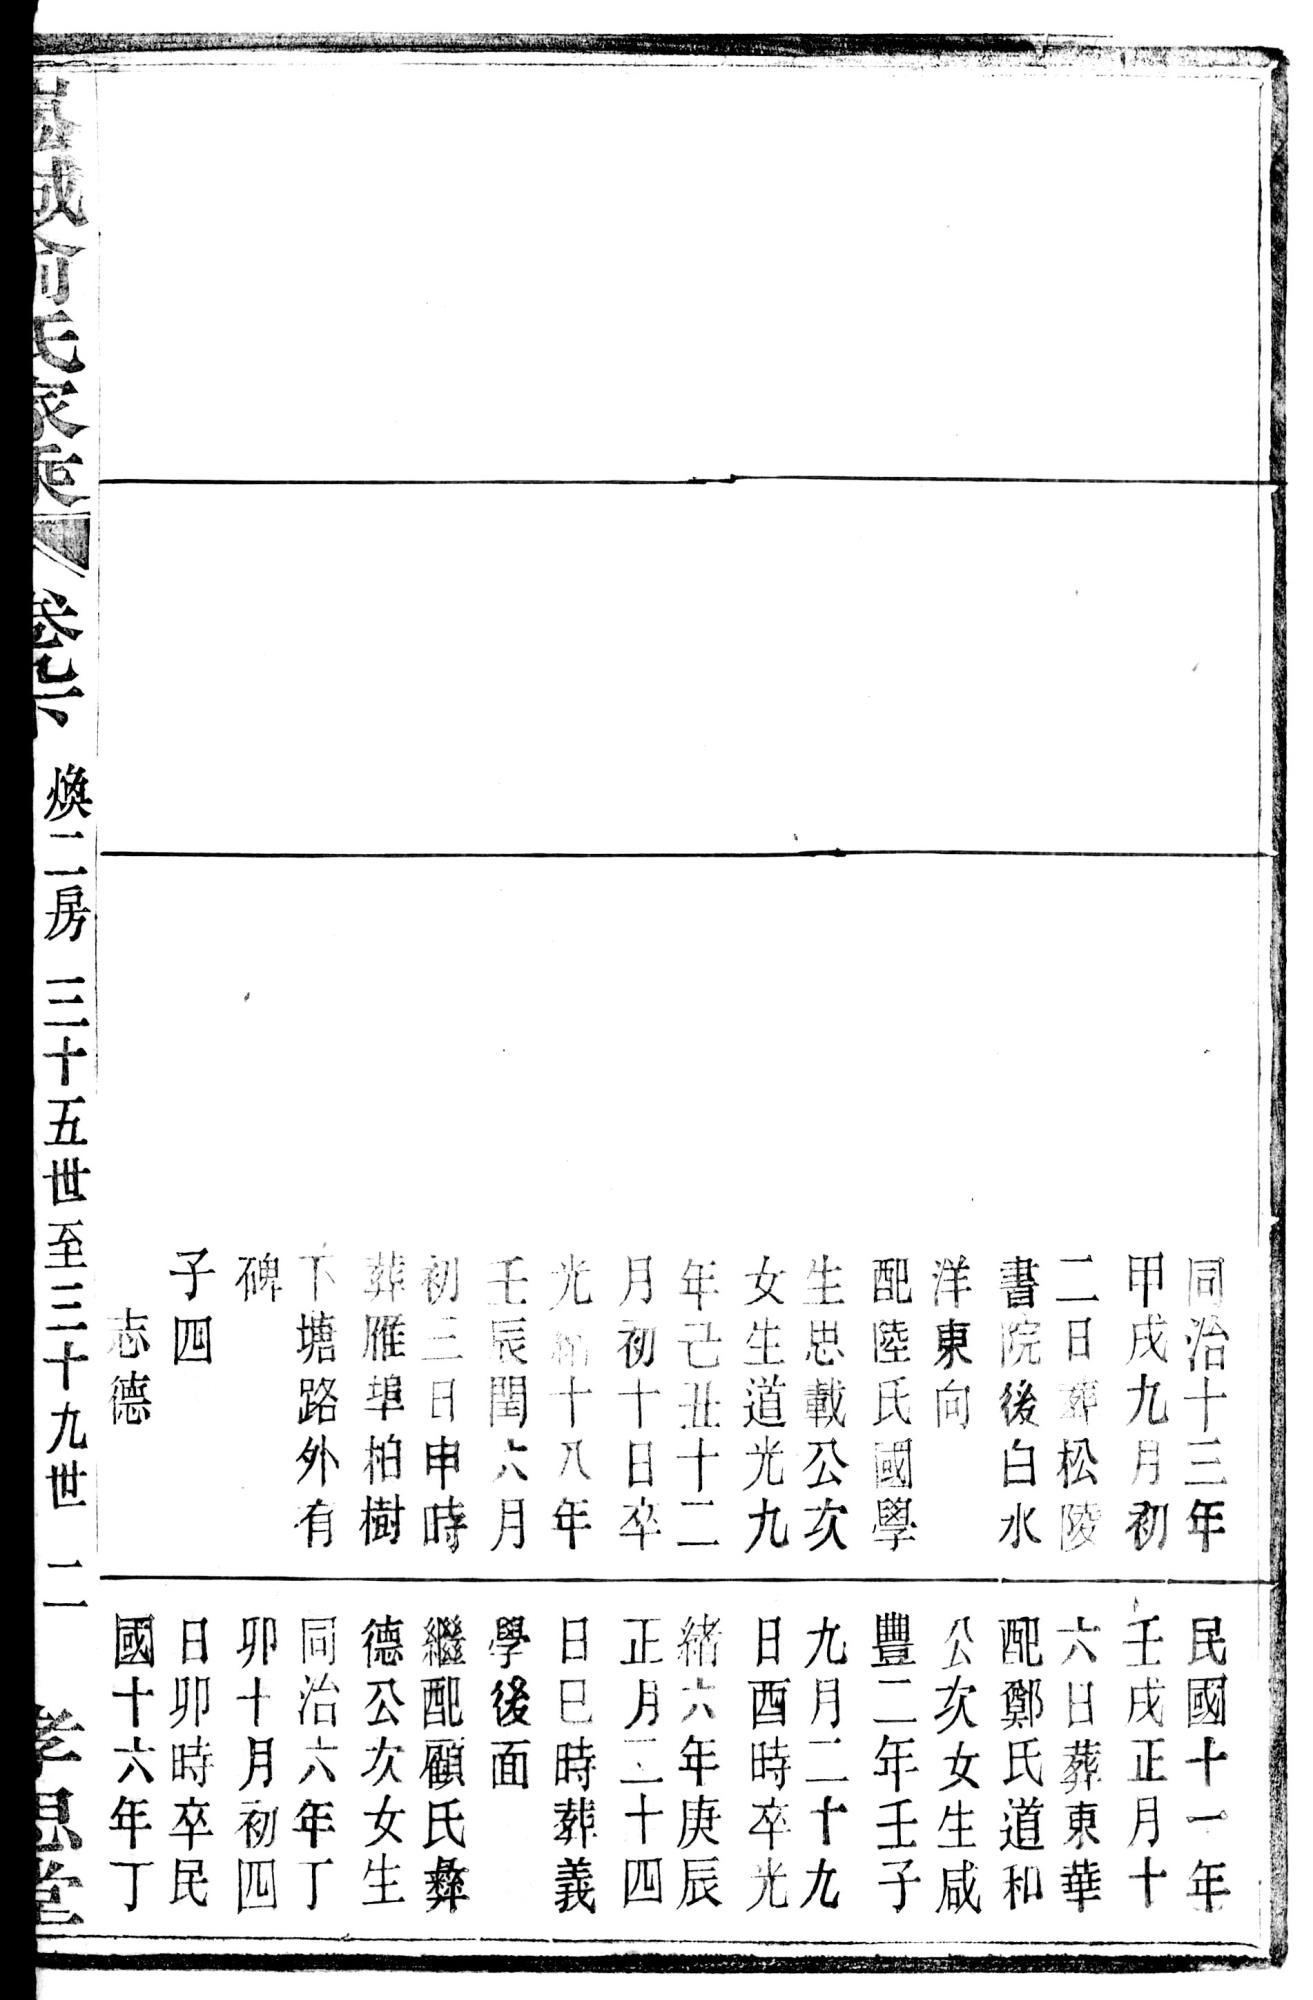 同治十三年
甲戌九月初
二日葬松陵
書院後白水
洋東向
配陸氏國學
生思載公次
女生道光九
年己丑十二
月初十日卒
光緒十八年
壬辰閏六月
初三日申時
葬雁埠柏樹
下塘路外有
碑
子四
志德
民國十一年
壬戌正月十
六日葬東華
配鄭氏道和
公次女生咸
豐二年壬子
九月二十九
日酉時卒光
緒六年庚辰
正月二十四
日巳時葬義
學後面
繼配顧氏彝
德公次女生
同治六年丁
卯十月初四
日卯時卒民
國十六年丁
俞氏家乘
卷九下
煥二房 三十五世至三十九世 二
孝思堂